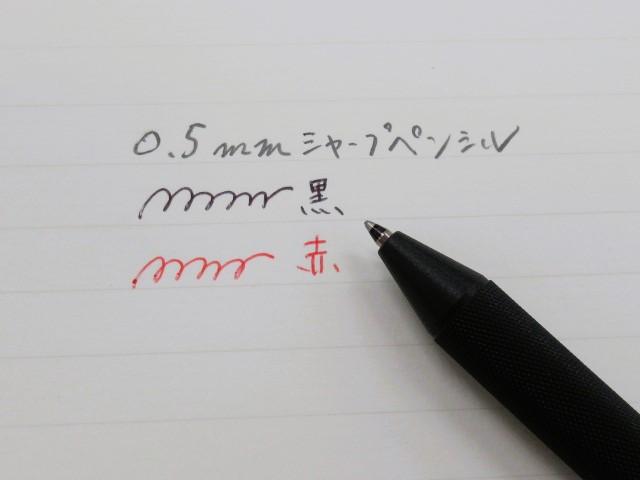 0.5mmシャープペンシル
黒
赤